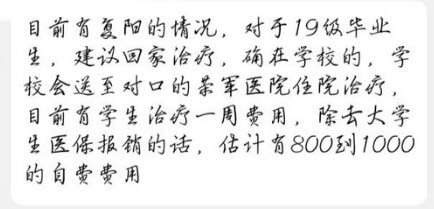 目前有复阳的情况，对于19级毕业
生，建议回家治疗，确在学校的，学
校会送至对口的荣军医院住院治疗，
目前有学生治疗一周费用，除去大学
生医保报销的话，估计有800到1000
的自费费用